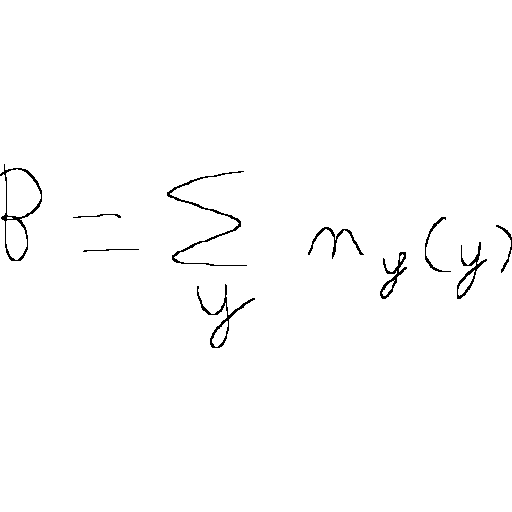 B = \sum_{y} n_y(y)